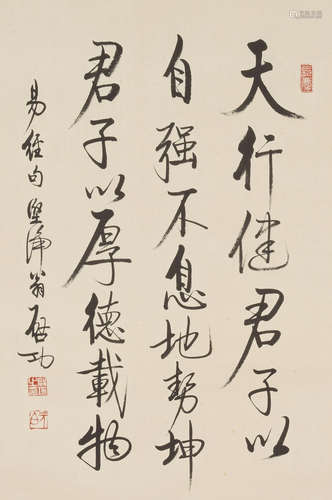 天行健君子以
自强不息地势坤
君子以厚德載物
易经句 坚净翁启功